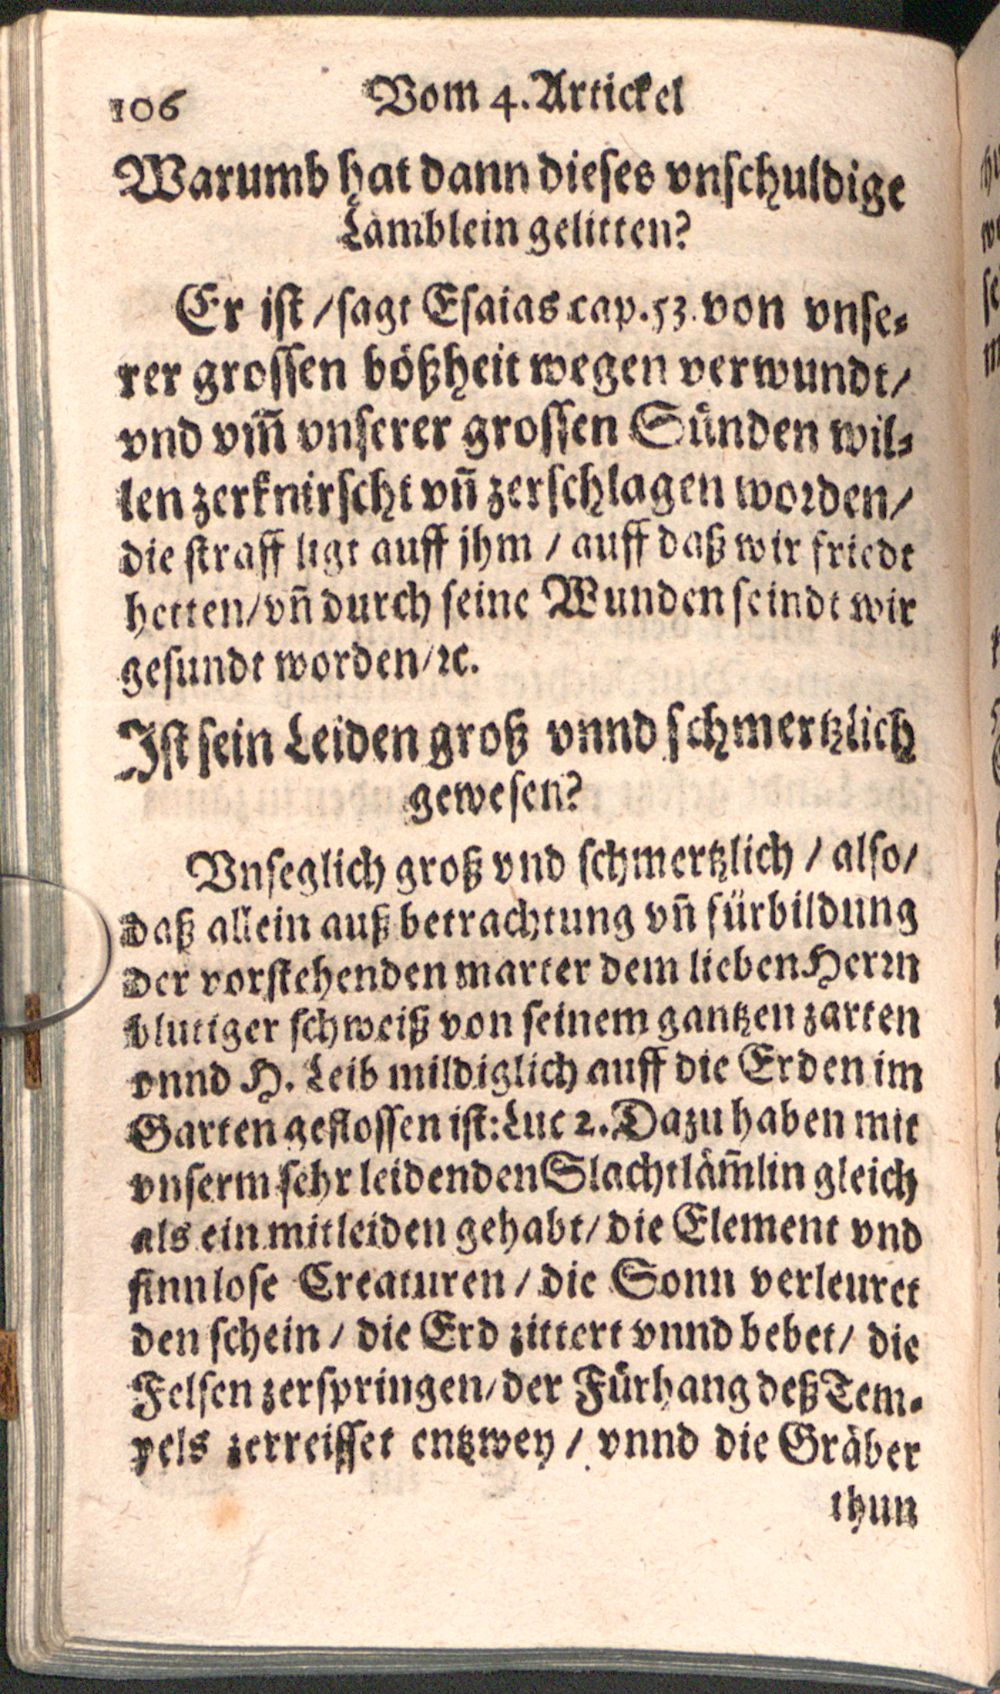 106 Vom 4. Artickel
Warumb hat dann dieses vnschuldige
Lämblein gelitten?
Er ist / sagt Esaias cap. 53. von vnse⸗
rer grossen bößheit wegen verwundt /
vnd vm̃ vnserer grossen Sünden wil⸗
len zerknirscht vñ zerschlagen worden /
die straff ligt auff jhm / auff daß wir friedt
hetten / vñ durch seine Wunden seindt wir
gesundt worden / ꝛc.
Ist sein Leiden groß vnnd schmertzlich
gewesen?
Vnseglich groß vnd schmertzlich / also /
daß allein auß betrachtung vñ fürbildung
der vorstehenden marter dem lieben Herꝛn
blutiger schweiß von seinem gantzen zarten
vnnd H. Leib mildiglich auff die Erden im
Garten geflossen ist: Luc 2. Dazu haben mit
vnserm sehr leidenden Slachtläm̃lin gleich
als ein mitleiden gehabt / die Element vnd
sinnlose Creaturen / die Sonn verleuret
den schein / die Erd zittert vnnd bebet / die
Felsen zerspringen / der Fürhang deß Tem⸗
pels zerreisset entzwey / vnnd die Gräber
thun